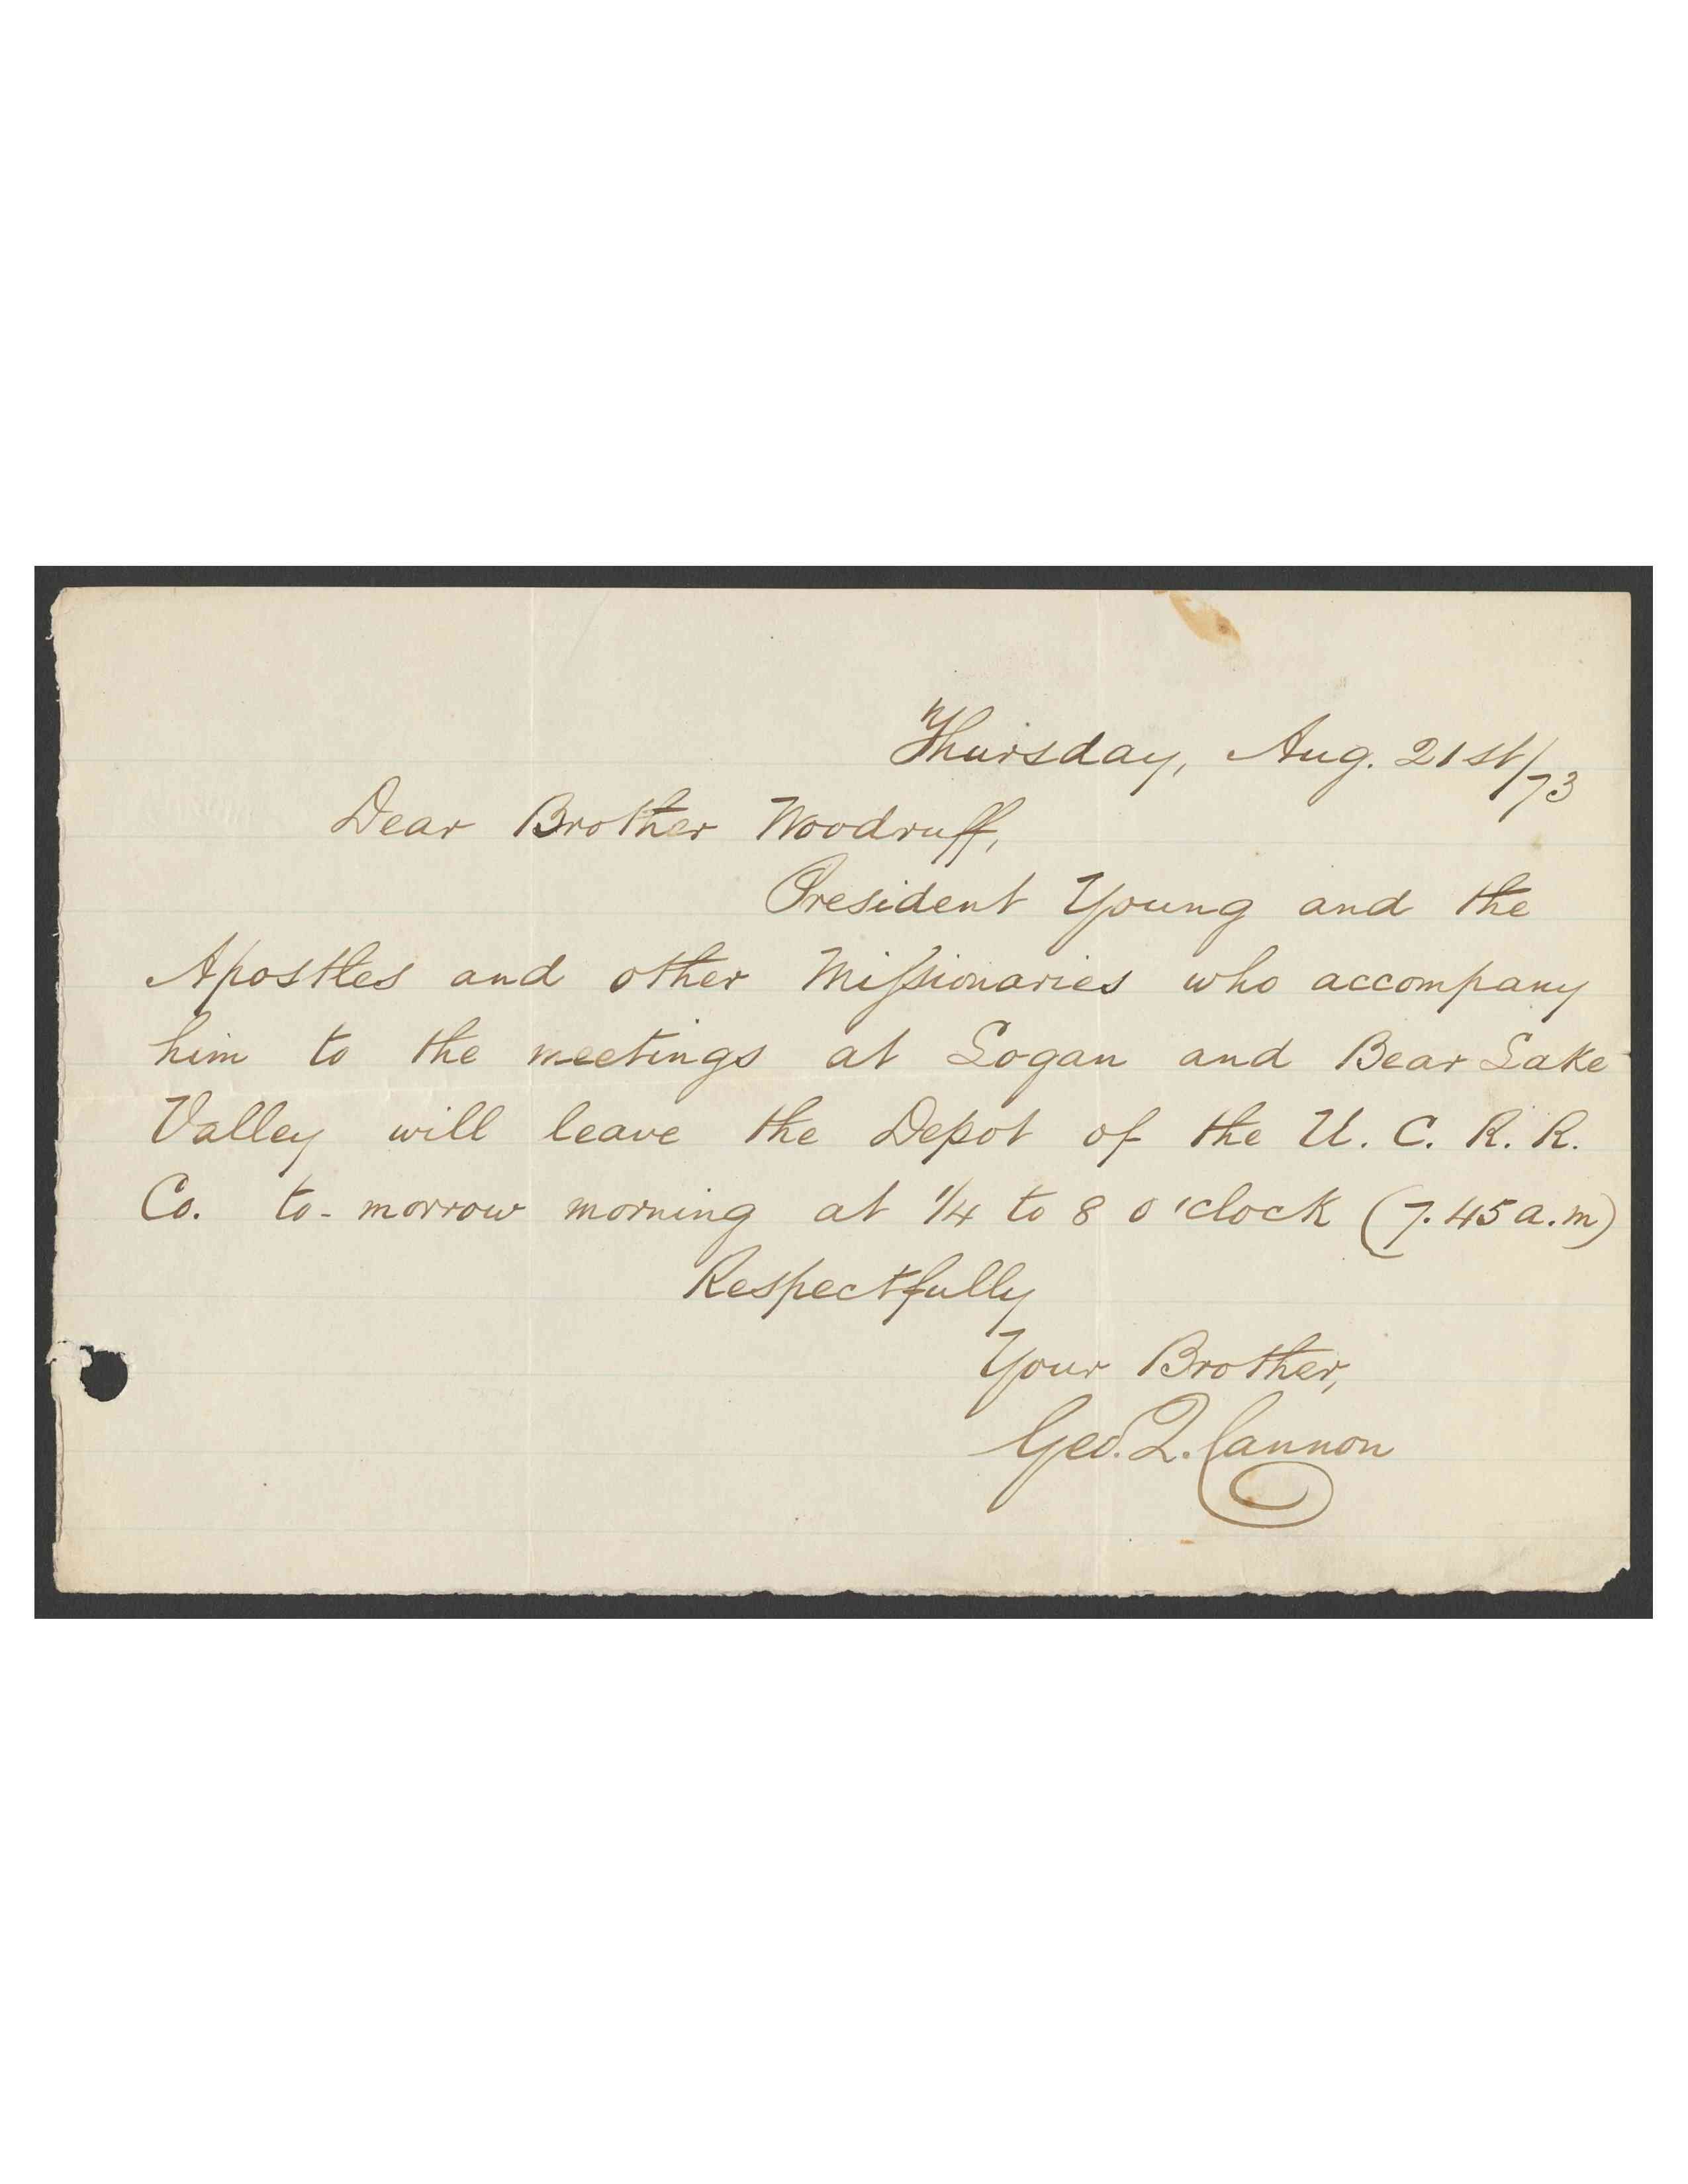 Thursday, Aug. 21st/73
Dear Brother Woodruff,
President Young and the
Apostles and other Missionaries who accompany
him to the meetings at Logan and Bear Lake
Valley will leave the Depot of the U. C. R. R.
Co. to-morrow morning at 1/4 to 8 o'clock (7.45 a.m)
Respectfully
Your Brother,
Geo. Q. Cannon